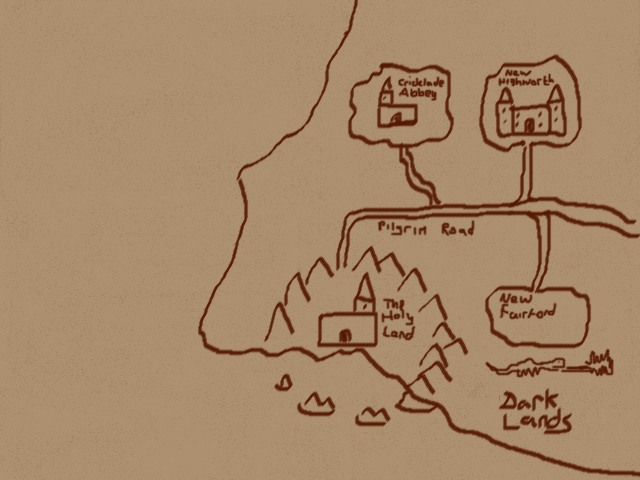 Cricklade
Abbey
New
Highworth
Pilgrim Road
The
Holy
Land
New
Fairford
Dark
Lands